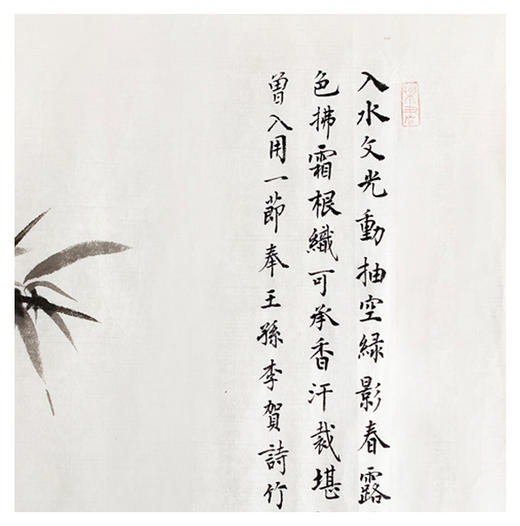 入水文光動抽空緑影春露
色拂霜根織可承香汗裁堪
曾入用一節奉王孫李賀詩竹